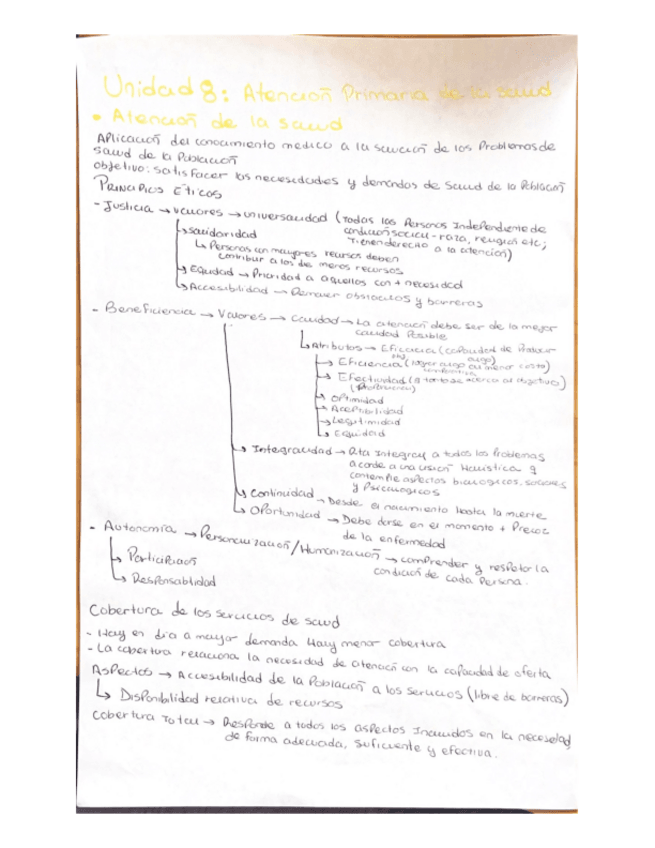 Unidad 8: Atención Primaria de la salud
• Atención de la salud
Aplicación del conocimiento medico a la solución de los Problemas de
salud de la Población
objetivo: satisfacer las necesidades y demandas de salud de la Población
Principios Éticos
- Justicia → valores → universalidad (todas las Personas Independiente de
condición social - raza, religión etc;
Tienen derecho a la atención)
↳ solidaridad
↳ Personas con mayores recursos deben
contribuir a los de menos recursos
↳ Equidad → Prioridad a aquellos con + necesidad
↳ Accesibilidad → Remover obstáculos y barreras
- Beneficiencia → Valores → calidad → La atención debe ser de la mejor
calidad Posible
↳ Atributos → Eficacia (capacidad de Producir
algo)
→ Eficiencia (lograr algo al menor costo)
→ Efectividad
→ Optimidad
→ Aceptibilidad
→ Legitimidad
↳ Equidad
↳ Integralidad → Integral a todos los Problemas
acorde a una visión Holística q
contemple aspectos biologicos, sociales
y Psicologicos
↳ Continuidad → Desde el nacimiento Hasta la muerte
↳ Oportunidad → Debe darse en el momento + Precoz
de la enfermedad
- Autonomía → Personalización/Humanización → comprender y respetar la
condición de cada Persona.
↳ Participación
↳ Responsabilidad
Cobertura de los servicios de salud
- Hoy en día a mayor demanda Hay menor cobertura
- La cobertura relaciona la necesidad de atención con la capacidad de oferta
Aspectos → Accesibilidad de la Población a los servicios (libre de barreras)
↳ Disponibilidad relativa de recursos
Cobertura Total → Responde a todos los aspectos Incluidos en la necesidad
de forma adecuada, suficiente y efectiva.